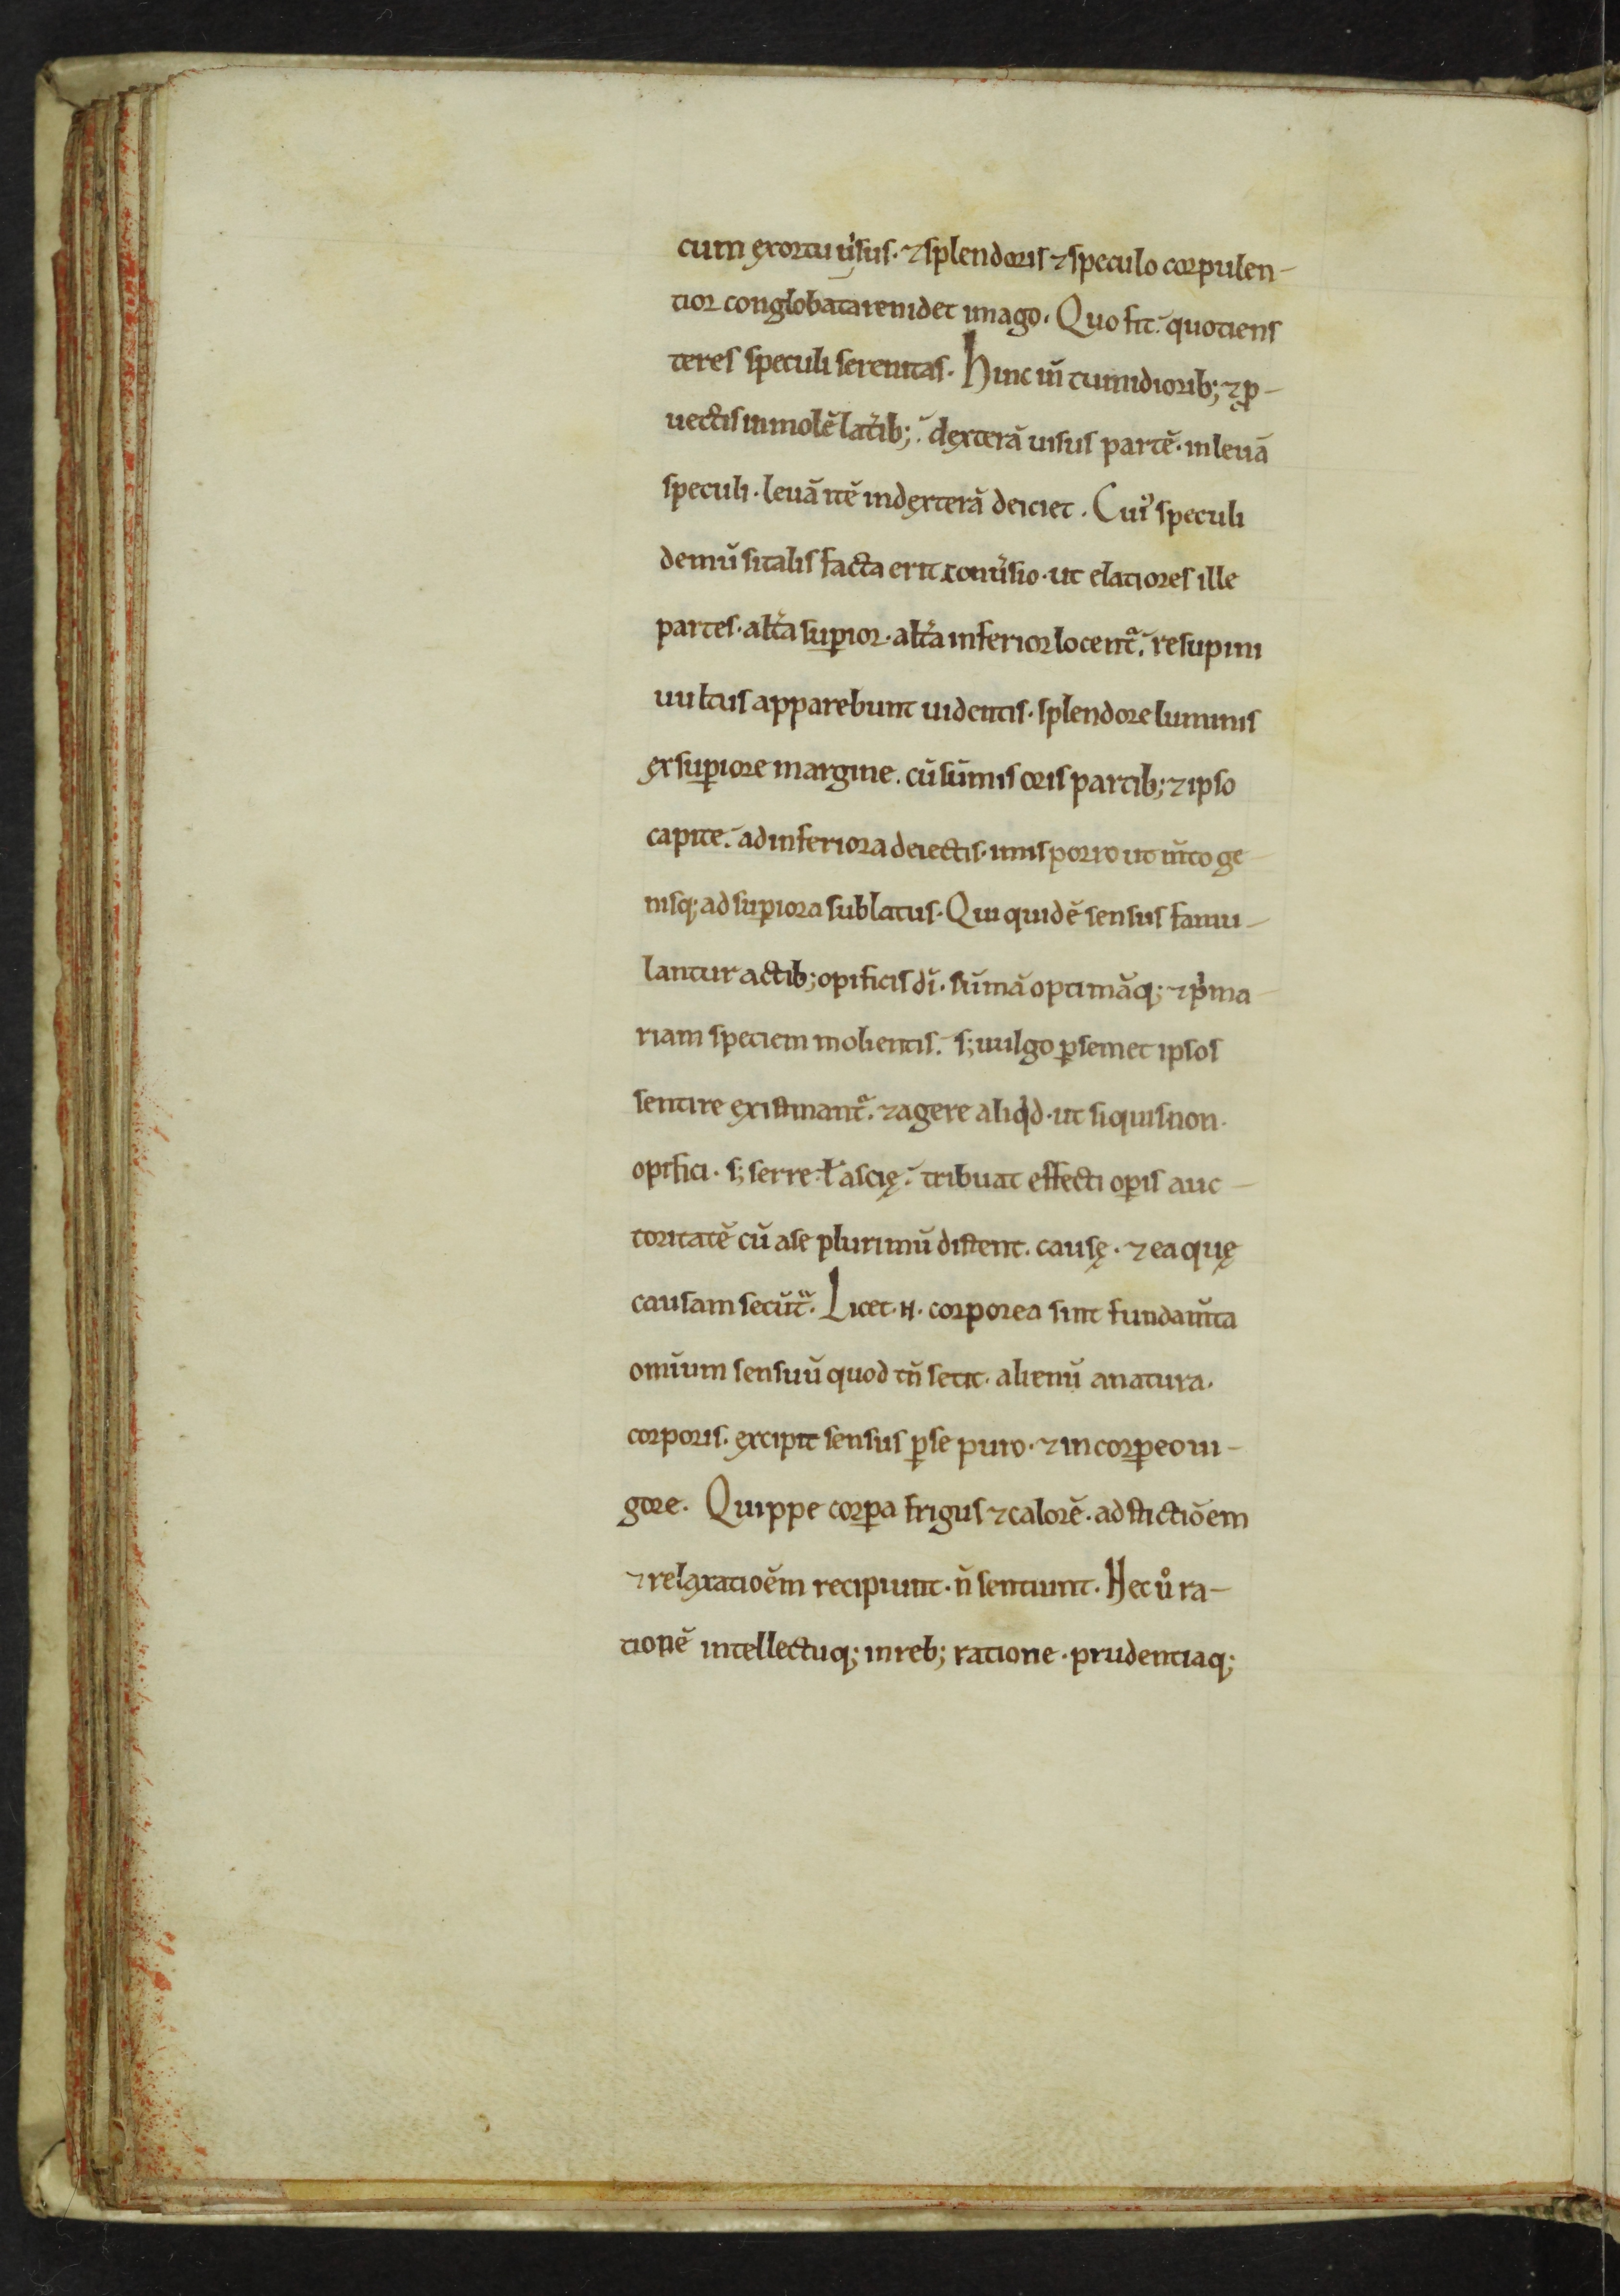 cum exortu uͥsus · ⁊ splendoris ⁊ speculo corpulen-
tior conglobata renidet imago. Quo fit. quotiens
teres speculi serenitas. Hinc iñ tumidiorib; ⁊ ꝓ-
uectis in molē lat̾ib; dexterā uisus partē. in leuā
speculi. leuā itē in dexterā deiciet. Cuiꝰ speculi
demū si talis facta erit conu̾sio. ut elatiores ille
partes. alt̾a suꝑior. alt̾a inferior locent᷑. resupini
uultus apparebunt uidentis. splendore luminis
ex suꝑiore margine. cū sūmis oris partib; ⁊ ipso
capite. ad inferiora deiectis. imis porro ut m̄to ge-
nisq; ad suꝑiora sublatus. Qui quidē sensus famu-
lantur actib; opificis dī. sūmā optimāq; ⁊ pͥma
riam speciem molientis. s; uulgo ꝑ semet ipsos
sentire existimant᷑. ⁊ agere aliqͥd. ut siquis non.
opifici. s; serre ł ascię. tribuat effecti oꝑis auc-
toritatē cū a se plurimū distent. causę. ⁊ ea quę
causam secūt᷑. Licet .n. corporea sint fundam̄ta
omīum sensuū quod tn̄ setit. alienū a natura.
corporis. excipit sensus ꝑ se puro. ⁊ incorꝑeo ui-
gore. Quippe corꝑa frigus ⁊ calorē. adstictiōem
⁊ relaxatioēm recipiunt. ñ sentiunt. Hec uͦ ra-
tionē intellectuq; in reb; ratione. prudentiaq;